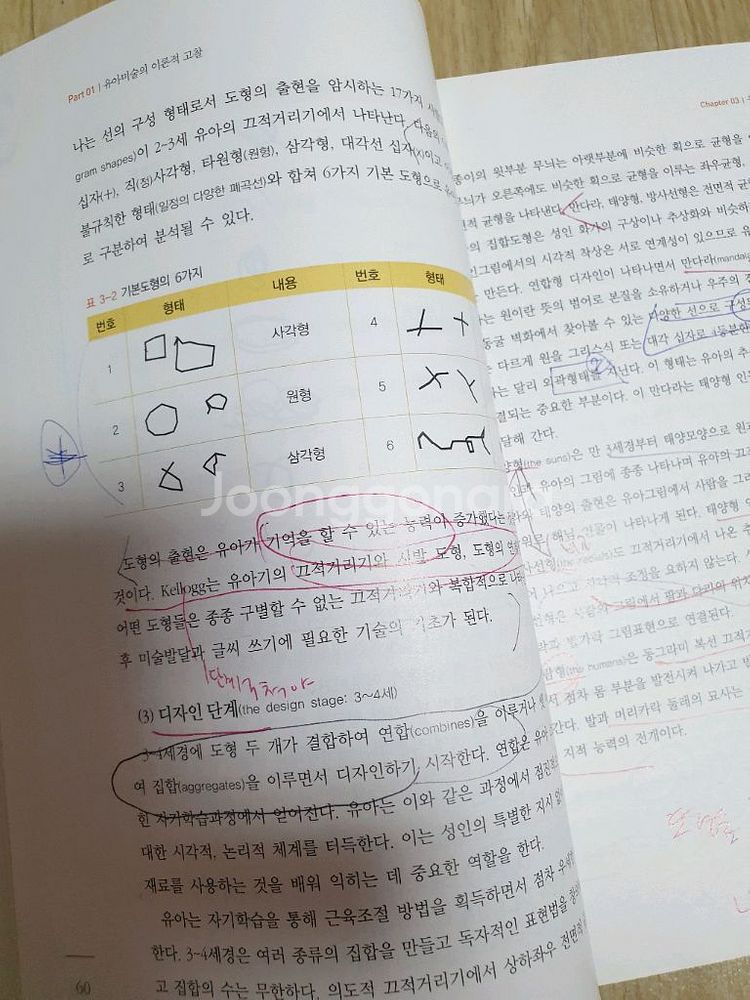 Part 01 | 유아미술의 이론적 고찰
나는 선의 구성 형태로서 도형의 출현을 암시하는 17가지
gram shapes)이 2~3세 유아의 끄적거리기에서 나타난다. 다음의
십자(+), 직(정)사각형, 타원형(원형), 삼각형, 대각선 십자(x)이고
불규칙한 형태(일정의 다양한 폐곡선)와 합쳐 6가지 기본 도형으로
로 구분하여 분석될 수 있다.
표 3-2 기본도형의 6가지
번호 형태 내용 번호 형태
1 사각형 4
2 원형 5
3 삼각형 6
Joonggonara
도형의 출현은 유아가 기억을 할 수 있는 능력이 증가했다는
것이다. Kellogg는 유아기의 끄적거리기와 사발 도형, 도형의
어떤 도형들은 종종 구별할 수 없는 끄적거리기와 복합적으로
후 미술발달과 글씨 쓰기에 필요한 기술의 기초가 된다.
(3) 디자인 단계(the design stage: 3~4세)
3~4세경에 도형 두 개가 결합하여 연합(combines)을 이루거나
여 집합(aggregates)을 이루면서 디자인하기 시작한다. 연합은
힌 자기학습과정에서 얻어진다. 유아는 이와 같은 과정에서
대한 시각적, 논리적 체계를 터득한다. 이는 성인의 특별한 지시
재료를 사용하는 것을 배워 익히는 데 중요한 역할을 한다.
유아는 자기학습을 통해 근육조절 방법을 획득하면서 점차
한다. 3~4세경은 여러 종류의 집합을 만들고 독자적인 표현법을
고 집합의 수는 무한하다. 의도적 끄적거리기에서 상하좌우 전면의
60
Chapter 03 |
종이의 윗부분 무늬는 아랫부분에 비슷한 획으로 균형을
오른쪽에도 비슷한 획으로 균형을 이루는 좌우균형,
균형을 나타낸다. 만다라, 태양형, 방사선형은 전면적
의 집합도형은 성인 화가의 구상이나 추상화와 비슷하
그림에서의 시각적 작상은 서로 연계성이 있으므로
만든다. 연합형 디자인이 나타나면서 만다라(mandala
는 원이란 뜻의 범어로 본질을 소유하거나 우주의
동굴 벽화에서 찾아볼 수 있는 다양한 선으로 구성
다르게 원을 그리스식 또는 대각 십자로 4등분한
는 달리 외곽형태를 지닌다. 이 형태는 유아의
결되는 중요한 부분이다. 이 만다라는 태양형
달해 간다.
(the suns)은 만 3세경부터 태양모양으로
유아의 그림에 종종 나타나며 유아의
태양의 출현은 유아그림에서 사람을
나타나게 된다. 태양형
도 끄적거리기에서 나온
조정을 요하지 않는다.
그림에서 팔과 다리의
그림표현으로 연결된다.
(the humans)은 동그라미 복선
점차 몸 부분을 발전시켜 나가고
발과 머리카락 둘레의 묘사는
지적 능력의 전개이다.